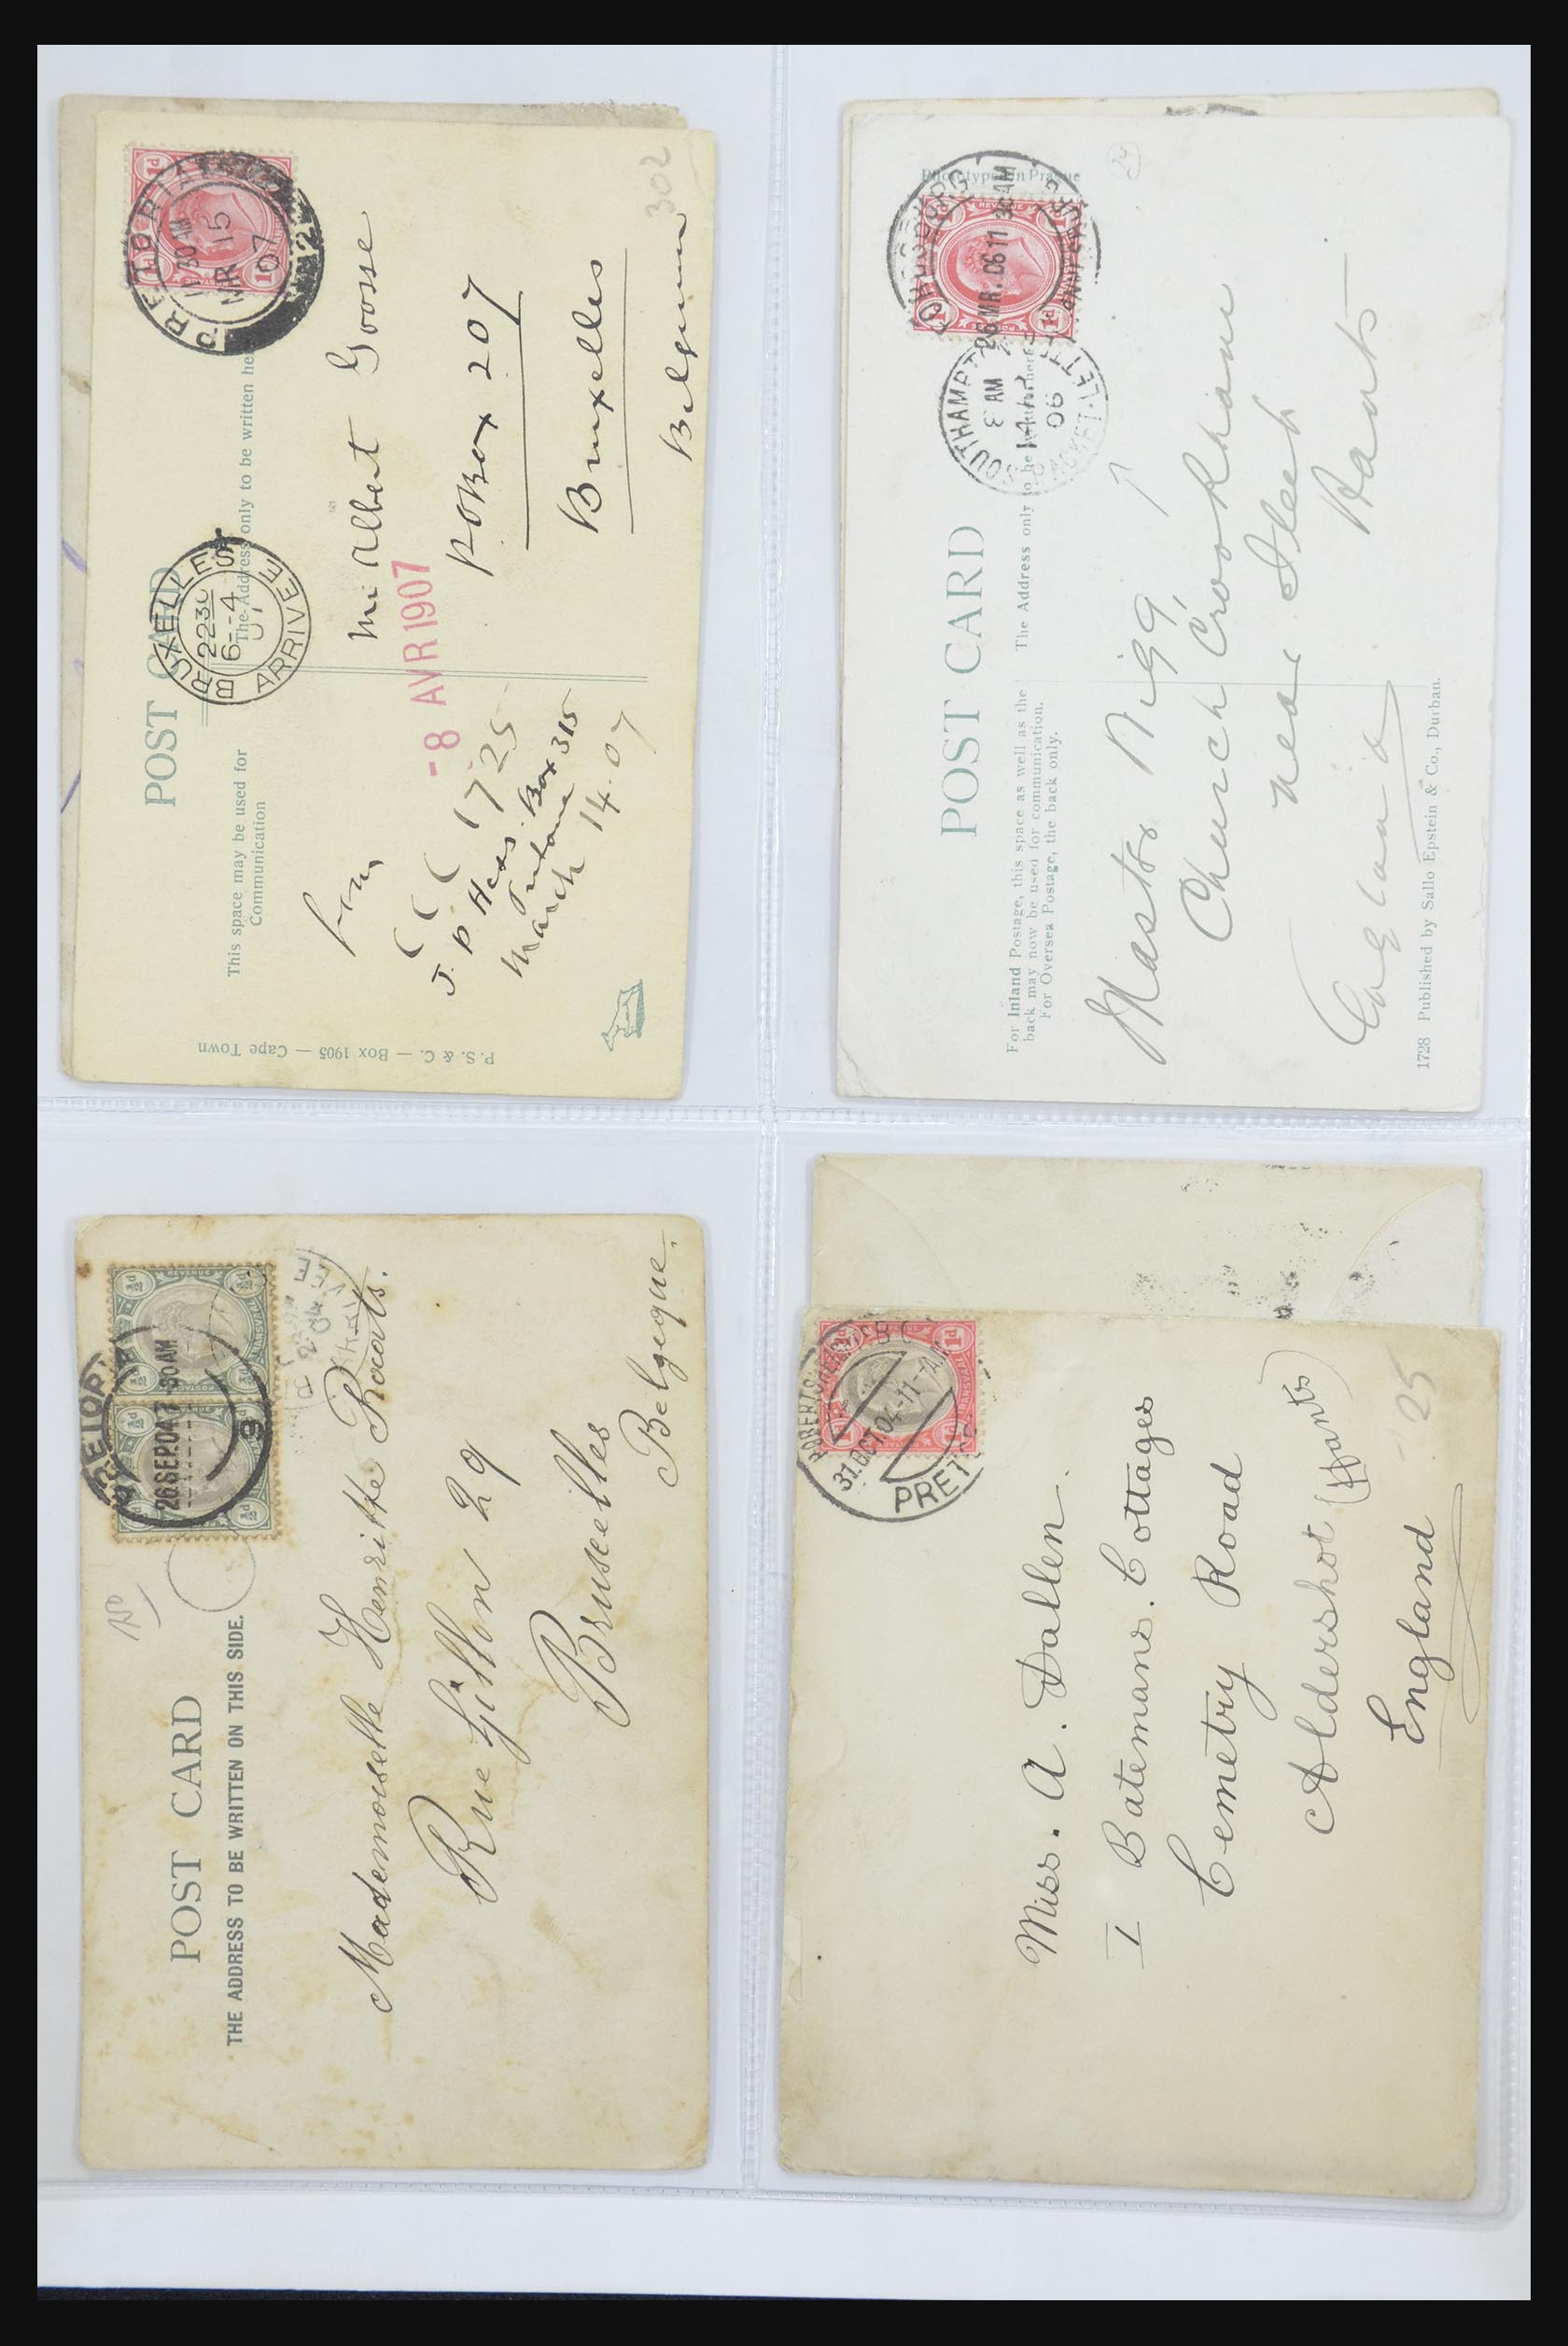 POST CARD
This space may be used for
Communication
The Address only to be written he
P. S. & C. — Box 1905 — Cape Town
PRETORIA
11 30 AM
MR 15
07
BRUXELLES
2230
6-4
ARRIVEE
- 8 AVR 1907
302
Mr Albert Goosse
PO Box 207
Bruxelles
Belgium
from
J. P. Hess. Box 315
1725
March 14. 07
POST CARD
For Inland Postage, this space as well as the
back may now be used for communication.
For Oversea Postage, the back only.
The Address only to be written here
Phototyped in Prague
26 MR. 06 11 30 AM
SOUTHAMPT
8 AM
14
06
PACKET LET
24
Master Nigg,
Church Crookham
near Fleet
Hants
England
1728 Published by Sallo Epstein & Co., Durban.
POST CARD
THE ADDRESS TO BE WRITTEN ON THIS SIDE.
REVENUE
½d
TRANSVAAL
26 SEP 04 7 30 AM
9
Mademoiselle Henriette Roouts.
Rue Gillon 29
Bruxelles
Belgique.
1d
TRANSVAAL
ROBERTS
31. OCT 04 - 11
PRET
25
Miss. A. Dallen.
I Batemans. Cottages
Cemetry Road
Aldershot (Hants)
England